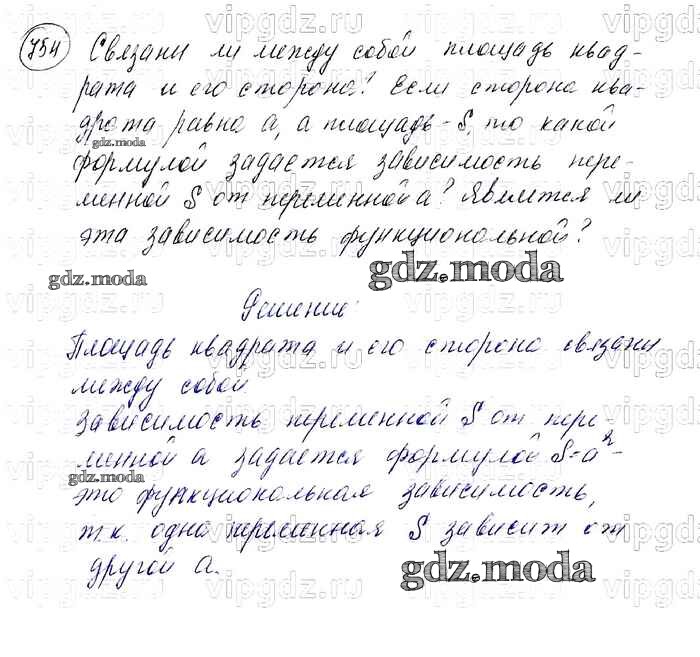 754 Связани ли между собой площадь квад-
рата и его сторона? Если сторона ква-
драта равна а, а площадь - S, то какой
gdz.moda
формулой задается зависимость пере-
менной S от переменной а? Является ли
эта зависимость функциональной?
gdz.moda
gdz.moda
Решение:
Площадь квадрата и его сторона связани
между собой.
Зависимость переменной S от пере-
менной а задается формулой S=a²-
gdz.moda
это функциональная зависимость,
т.к. одна переменная S зависит от
другой а.
gdz.moda
vipgdz.ru